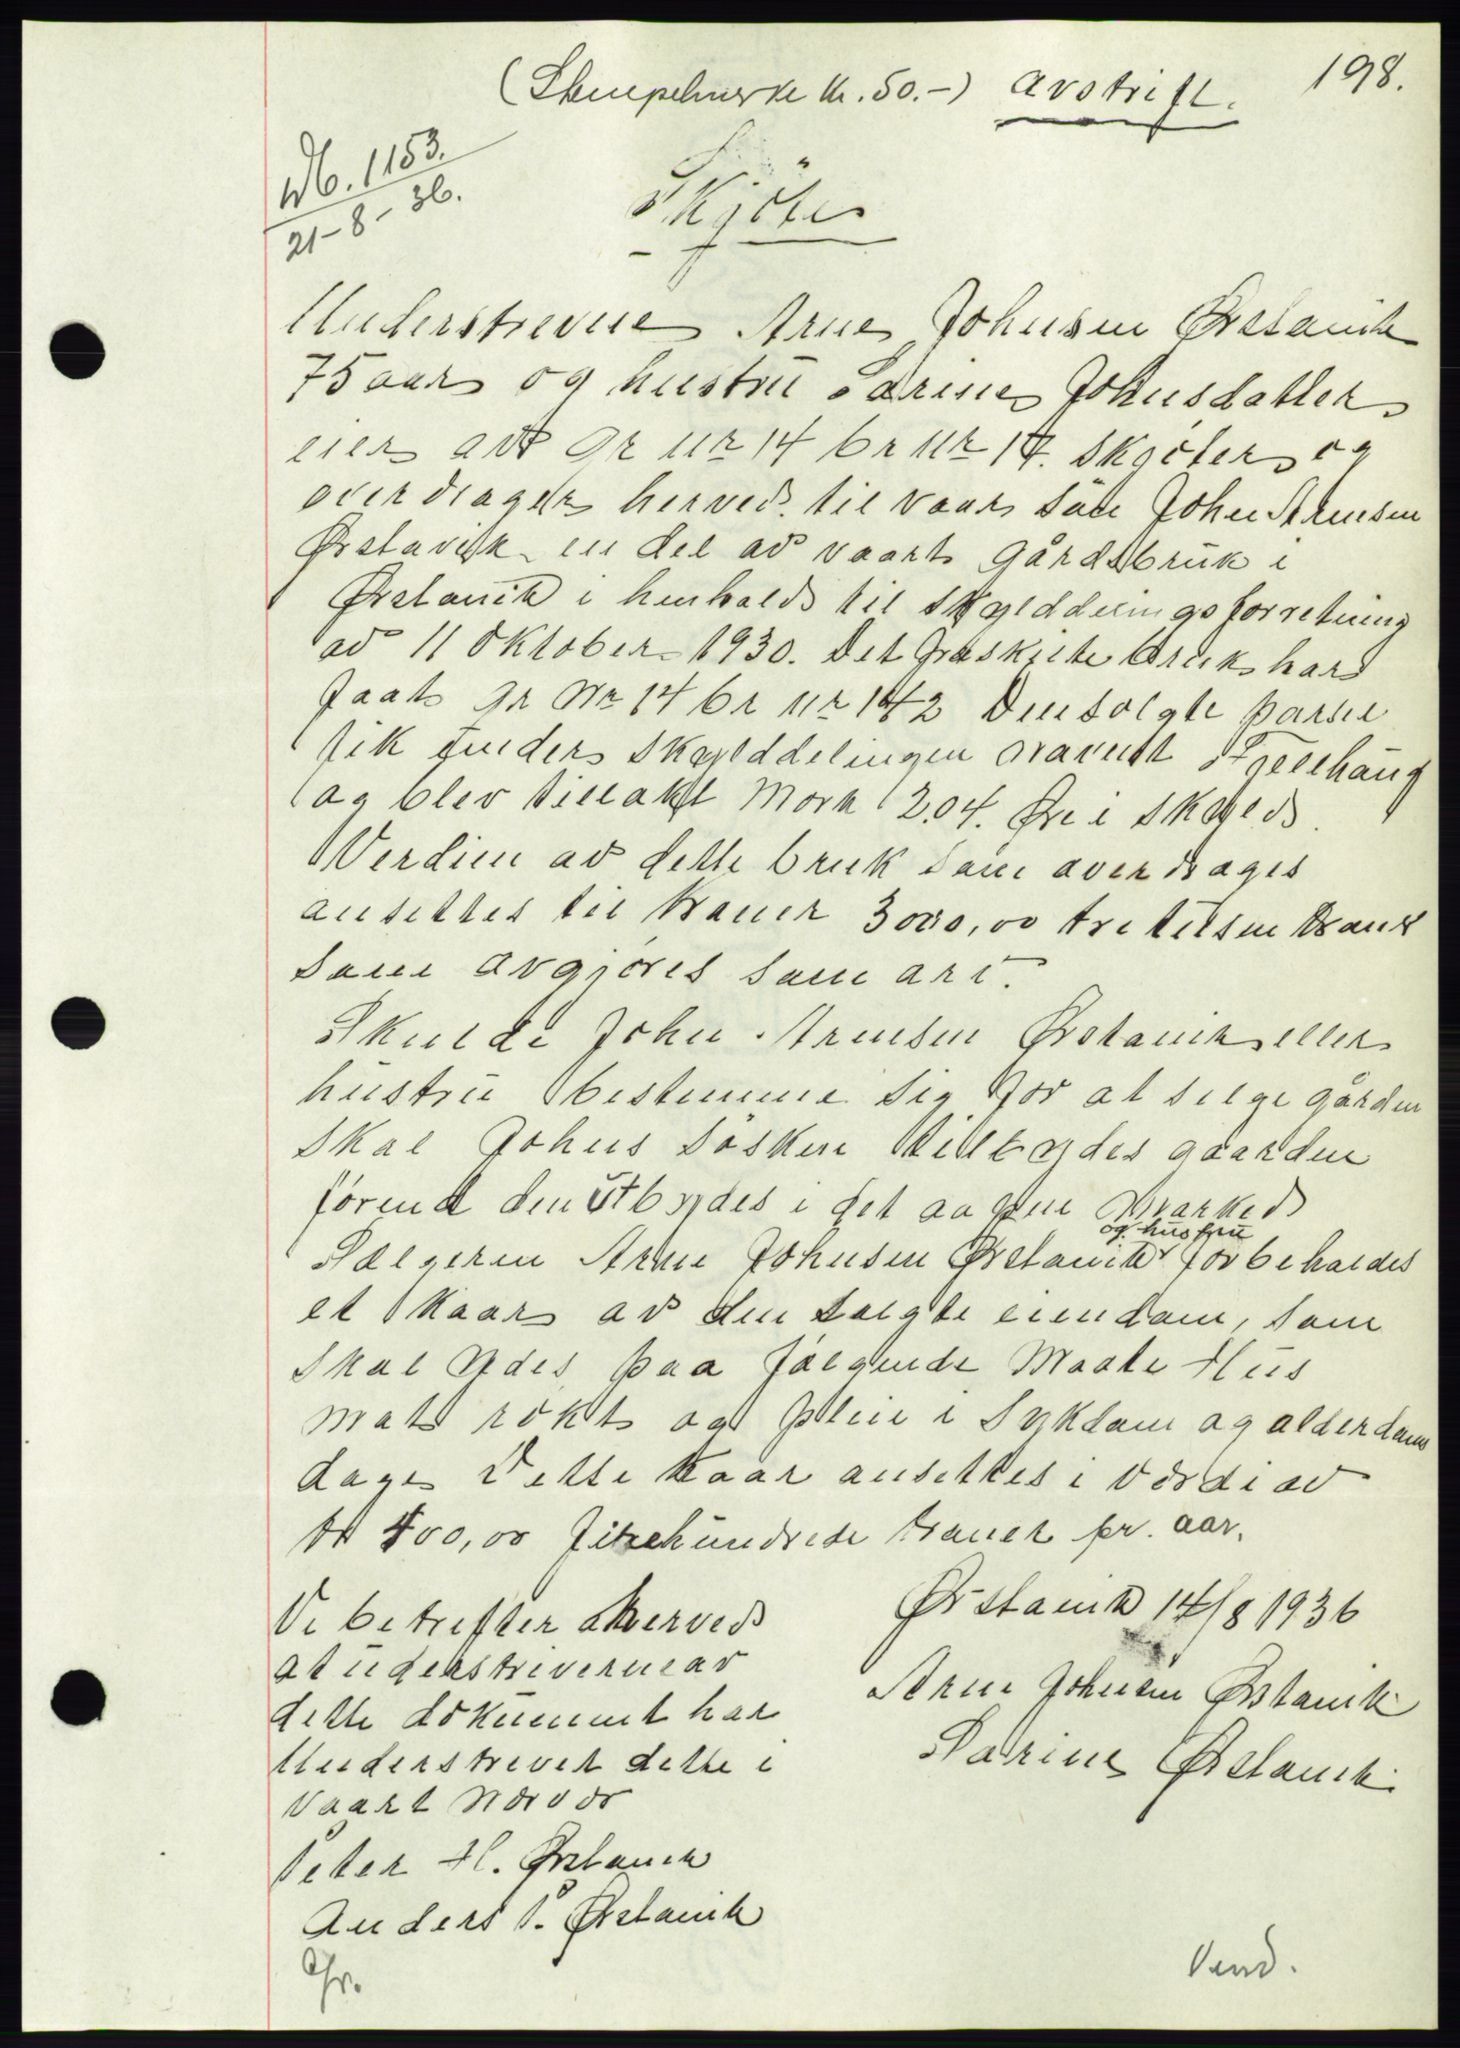 198.
(Stempelmerke kr. 50.-) Avskrift.
Db. 1153.
21-8-36.
Skjöte
Underskrevne Arne Johnsen Ørstavik
75 aar og hustru Sarine Johnsdatter
eier av gr nr 14 br nr 14. skjöter og
overdrager herved til vaar sön John Arnesen
Ørstavik en del av vaart gårdsbruk i
Ørstavik i henhold til skylddelingsforretning
av 11 Oktober 1930. Det fraskilte bruk har
faat gr Nr 14 br nr 142 Den solgte parsel
fik under skylddelingen navnet Fjellhaug
og blev tillakt Mark 2.04. Øre i skyld.
Verdien av dette bruk som overdrages
ansettes til kroner 3000,00 tre tusen kroner
som avgjöres som arv.
Skulde John Arnesen Ørstavik eller
hustru bestemme sig for at selge gården
skal Johns sösken tilbydes gaarden
förend den utbydes i det aapne Marked
og hustru
Sælgeren Arne Johnsen Ørstavik forbeholdes
et kaar av den solgte eiendom, som
skal ydes paa fölgende Maate Hus
mat rökt og pleie i sykdom og alderdoms
dage Dette kaar ansettes i verdi av
kr 400,00 firehundrede kroner pr. aar.
Ørstavik 14/8 1936
Arne Johnsen Ørstavik
Sarine Ørstavik
Vi bekrefter herved
at underskriverne av
dette dokument har
Underskrevet dette i
vaart nærvær
Peter H. Ørstavik
Anders P. Ørstavik
Vend.